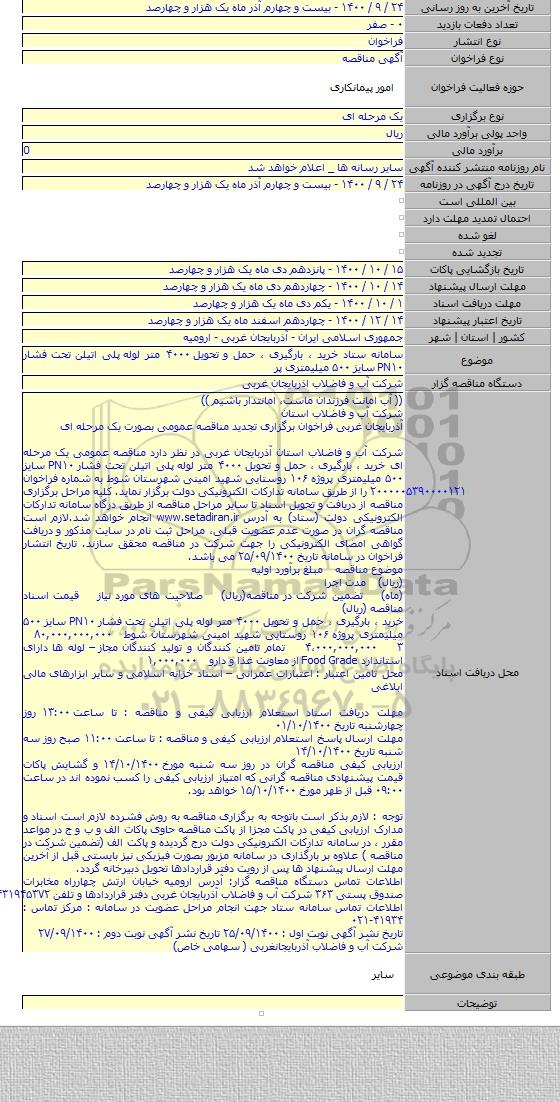 تاریخ آخرین به روز رسانی ۲۴ / ۹ / ۱۴۰۰ - بیست و چهارم آذر ماه یک هزار و چهارصد
تعداد دفعات بازدید ۰ - صفر
نوع انتشار فراخوان
نوع فراخوان آگهی مناقصه
حوزه فعالیت فراخوان امور پیمانکاری
نوع برگزاری یک مرحله ای
واحد پولی برآورد مالی ریال
برآورد مالی 0
نام روزنامه منتشر کننده آگهی سایر رسانه ها _ اعلام خواهد شد
تاریخ درج آگهی در روزنامه ۲۴ / ۹ / ۱۴۰۰ - بیست و چهارم آذر ماه یک هزار و چهارصد
بین المللی است
احتمال تمدید مهلت دارد
لغو شده
تجدید شده
تاریخ بازگشایی پاکات ۱۵ / ۱۰ / ۱۴۰۰ - پانزدهم دی ماه یک هزار و چهارصد
مهلت ارسال پیشنهاد ۱۴ / ۱۰ / ۱۴۰۰ - چهاردهم دی ماه یک هزار و چهارصد
مهلت دریافت اسناد ۱ / ۱۰ / ۱۴۰۰ - یکم دی ماه یک هزار و چهارصد
تاریخ اعتبار پیشنهاد ۱۴ / ۱۲ / ۱۴۰۰ - چهاردهم اسفند ماه یک هزار و چهارصد
کشور | استان | شهر جمهوری اسلامی ایران - آذربایجان غربی - ارومیه
موضوع سامانه ستاد خرید ، بارگیری ، حمل و تحویل ۴۰۰۰ متر لوله پلی اتیلن تحت فشار
PN۱۰ سایز ۵۰۰ میلیمتری پر
دستگاه مناقصه گزار شرکت آب و فاضلاب آذربایجان غربی
محل دریافت اسناد
(( آب امانت فرزندان ماست، امانتدار باشیم ))
شرکت آب و فاضلاب استان
آذربایجان غربی فراخوان برگزاری تجدید مناقصه عمومی بصورت یک مرحله ای
شرکت آب و فاضلاب استان آذربایجان غربی در نظر دارد مناقصه عمومی یک مرحله
ای خرید ، بارگیری ، حمل و تحویل ۴۰۰۰ متر لوله پلی اتیلن تحت فشار PN۱۰ سایز
۵۰۰ میلیمتری پروژه ۱۰۶ روستایی شهید امینی شهرستان شوط به شماره فراخوان
۲۰۰۰۰۰۵۳۹۰۰۰۰۱۲۱ را از طریق سامانه تدارکات الکترونیکی دولت برگزار نماید. کلیه مراحل برگزاری
مناقصه از دریافت و تحویل اسناد تا سایر مراحل مناقصه از طریق درگاه سامانه تدارکات
الکترونیکی دولت (ستاد) به آدرس www.setadiran.ir انجام خواهد شد.لازم است
مناقصه گران در صورت عدم عضویت قبلی، مراحل ثبت نام در سایت مذکور و دریافت
گواهی امضای الکترونیکی را جهت شرکت در مناقصه محقق سازند. تاریخ انتشار
فراخوان در سامانه تاریخ ۲۵/۰۹/۱۴۰۰ می باشد.
موضوع مناقصه مبلغ برآورد اولیه
(ریال) مدت اجرا
(ماه) تضمین شرکت در مناقصه(ریال) صلاحیت های مورد نیاز قیمت اسناد
مناقصه (ریال)
خرید ، بارگیری ، حمل و تحویل ۴۰۰۰ متر لوله پلی اتیلن تحت فشار PN۱۰ سایز ۵۰۰
میلیمتری پروژه ۱۰۶ روستایی شهید امینی شهرستان شوط ۸۰,۰۰۰,۰۰۰,۰۰۰
۳ ۴.۰۰۰,۰۰۰,۰۰۰ تمام تامین کنندگان و تولید کنندگان مجاز – لوله ها دارای
استاندارد Food Grade از معاونت غذا و دارو ۱,۰۰۰,۰۰۰
محل تامین اعتبار : اعتبارات عمرانی – اسناد خزانه اسلامی و سایر ابزارهای مالی
ابلاغی
مهلت دریافت اسناد استعلام ارزیابی کیفی و مناقصه : تا ساعت ۱۳:۰۰ روز
چهارشنبه تاریخ ۰۱/۱۰/۱۴۰۰
مهلت ارسال پاسخ استعلام ارزیابی کیفی و مناقصه : تا ساعت ۱۱:۰۰ صبح روز سه
شنبه تاریخ ۱۴/۱۰/۱۴۰۰
ارزیابی کیفی مناقصه گران در روز سه شنبه مورخ ۱۴/۱۰/۱۴۰۰ و گشایش پاکات
قیمت پیشنهادی مناقصه گرانی که امتیاز ارزیابی کیفی را کسب نموده اند در ساعت
۰۹:۰۰ قبل از ظهر مورخ ۱۵/۱۰/۱۴۰۰ خواهد بود.
توجه : لازم بذکر است باتوجه به برگزاری مناقصه به روش فشرده لازم است اسناد و
مدارک ارزیابی کیفی در پاکت مجزا از پاکت مناقصه حاوی پاکات الف و ب و ج در مواعد
مقرر ، در سامانه تدارکات الکترونیکی دولت درج گردیده و پاکت الف (تضمین شرکت در
مناقصه ) علاوه بر بارگذاری در سامانه مزبور بصورت فیزیکی نیز بایستی قبل از آخرین
مهلت ارسال پیشنهاد ها پس از رویت دفتر قراردادها تحویل دبیرخانه گردد.
اطلاعات تماس دستگاه مناقصه گزار: آدرس ارومیه خیابان ارتش چهارراه مخابرات
صندوق پستی ۳۶۳ شرکت آب و فاضلاب آذربایجان غربی دفتر قراردادها و تلفن
اطلاعات تماس سامانه ستاد جهت انجام مراحل عضویت در سامانه : مرکز تماس :
۰۲۱-۴۱۹۳۴
تاریخ نشر آگهی نوبت اول : ۲۵/۰۹/۱۴۰۰ تاریخ نشر آگهی نوبت دوم : ۲۷/۰۹/۱۴۰۰
شرکت آب و فاضلاب آذربایجانغربی ( سهامی خاص)
طبقه بندی موضوعی سایر
توضیحات
ParsNamadData
۰۲۱-۸۸۳۴۹۶۷۰-۵